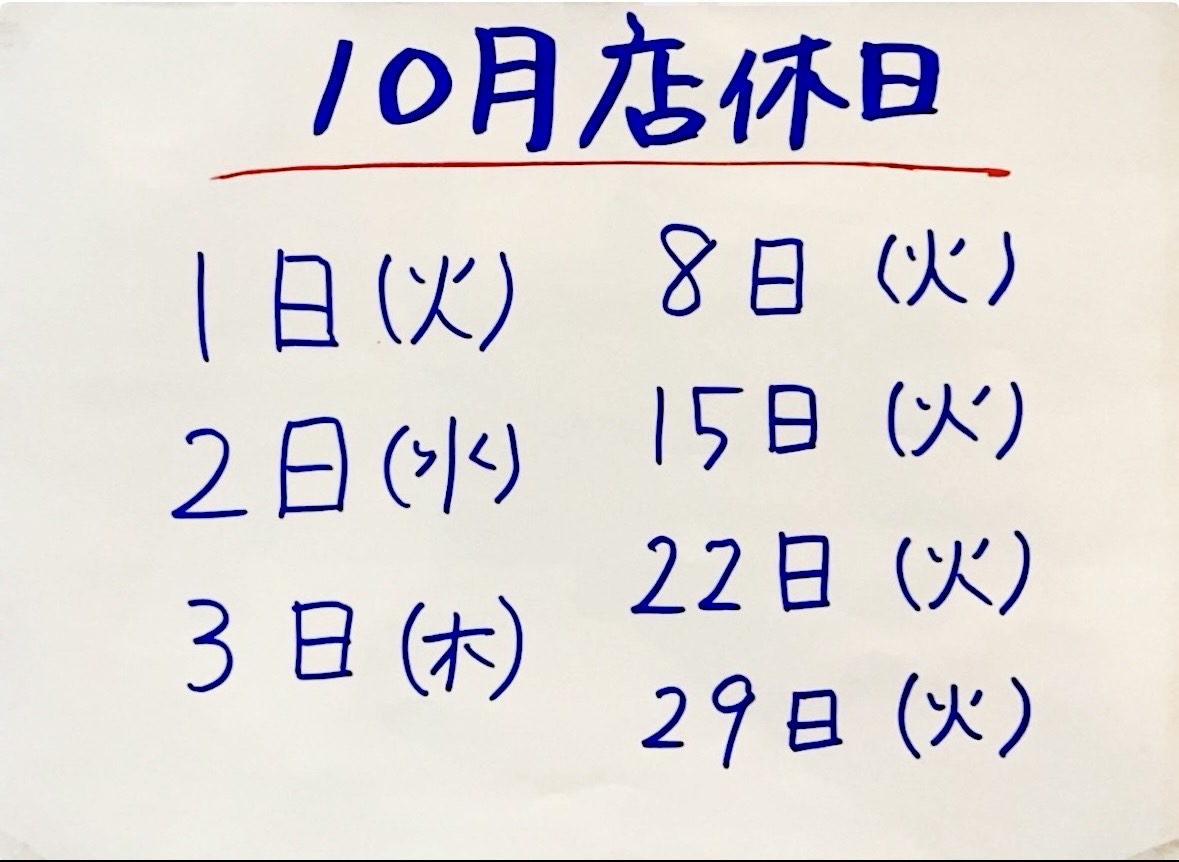 10月店休日
1日(火)
2日(水)
3日(木)
8日(火)
15日(火)
22日(火)
29日(火)